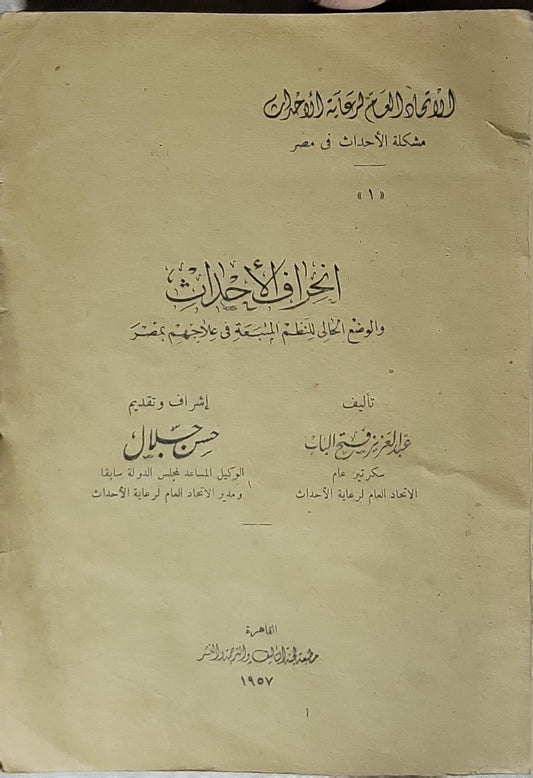 الاتحاد العام لرعاية الأحداث
مشكلة الأحداث فى مصر
« ١ »
انحراف الأحداث
والوضع الحالى للنظم المتبعة فى علاجهم بمصر
تأليف
عبد العزيز فتح الباب
سكرتير عام
الاتحاد العام لرعاية الأحداث
إشراف وتقديم
حسن جلال
الوكيل المساعد لمجلس الدولة سابقا
ومدير الاتحاد العام لرعاية الأحداث
القاهرة
مطبعة لجنة التأليف والترجمة والنشر
١٩٥٧